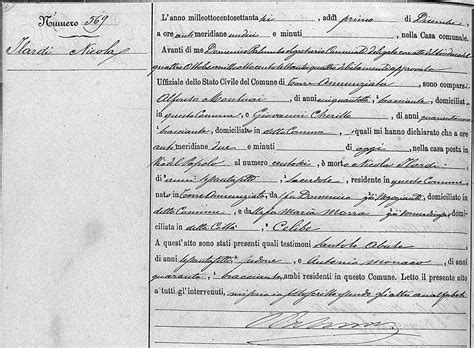 Numero 369
Ilardi Nicola
L'anno milleottocentosettantasei, addì primo di Dicembre
a ore antimeridiane undici e minuti, nella Casa comunale.
Avanti di me Domenico Palumbo Segretario Comunale delegato con atto
quattro Ottobre milleottocentosettantaquattro debitamente approvato
Uffiziale dello Stato Civile del Comune di Torre Annunziata, sono comparsi
Alfonso, di anni cinquantotto, bracciante, domiciliato
in questo Comune e Giovanni, di anni quarantuno
bracciante, domiciliato in detto Comune, quali mi hanno dichiarato che a ore
antimeridiane due e minuti di oggi, nella casa posta in
Via del Popolo al numero centosei, è morto Nicola Ilardi
di anni settantasette, Sacerdote, residente in questo Comune
nato in Torre Annunziata, da fu Domenico già Negoziante, domiciliato in
detto Comune, e da fu Maria Marra già, domi-
ciliata in detta Città, Celibe
A quest'atto sono stati presenti quali testimoni Santolo Abate
di anni, e Antonio Monaco, di anni
quaranta, bracciante, ambi residenti in questo Comune. Letto il presente atto
a tutti gl'intervenuti,